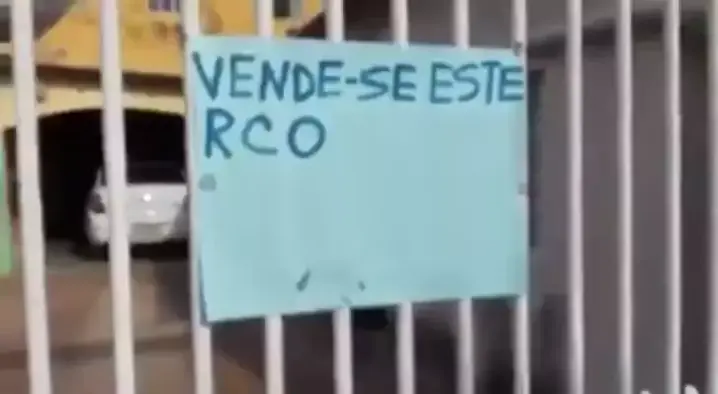 VENDE-SE ESTE
RCO